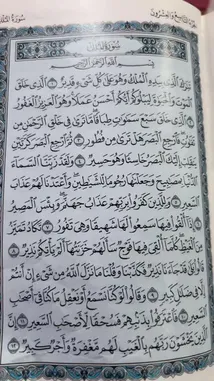 سورة الملك
بسم الله الرحمن الرحيم
تبارك الذي بيده الملك وهو على كل شيء قدير ١ الذي خلق
الموت والحياة ليبلوكم أيكم أحسن عملا وهو العزيز الغفور
٢ الذي خلق سبع سماوات طباقا ما ترى في خلق الرحمن من
تفاوت فارجع البصر هل ترى من فطور ٣ ثم ارجع البصر كرتين
ينقلب إليك البصر خاسئا وهو حسير ٤ ولقد زينا السماء
الدنيا بمصابيح وجعلناها رجوما للشياطين وأعتدنا لهم عذاب
السعير ٥ وللذين كفروا بربهم عذاب جهنم وبئس المصير
٦ إذا ألقوا فيها سمعوا لها شهيقا وهي تفور ٧ تكاد تميز
من الغيظ كلما ألقي فيها فوج سألهم خزنتها ألم يأتكم نذير ٨
قالوا بلى قد جاءنا نذير فكذبنا وقلنا ما نزل الله من شيء إن أنتم
إلا في ضلال كبير ٩ وقالوا لو كنا نسمع أو نعقل ما كنا في أصحاب
السعير ١٠ فاعترفوا بذنبهم فسحقا لأصحاب السعير ١١ إن
الذين يخشون ربهم بالغيب لهم مغفرة وأجر كبير ١٢